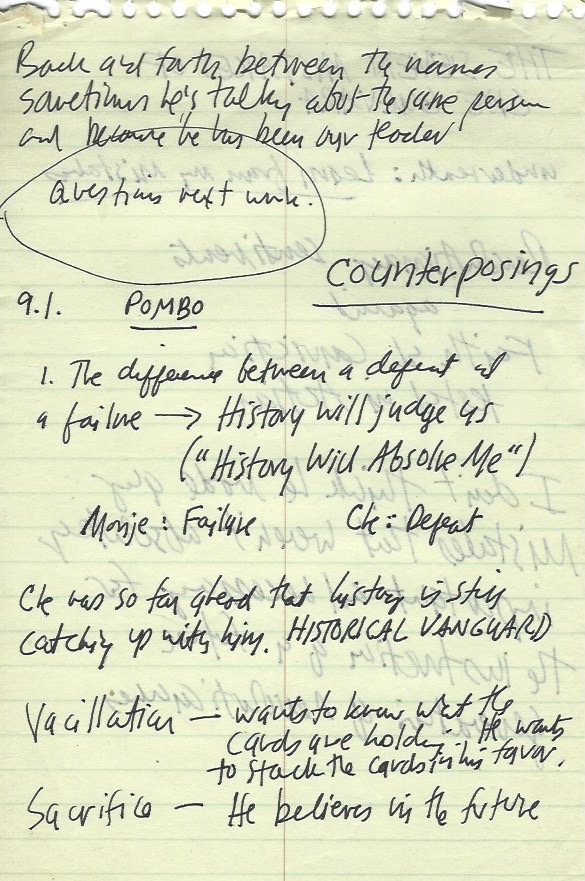 Back and forth between the names
sometimes he's talking about the same person
and because he has been our leader
Questions next week.
Counterposings
9.1. POMBO
1. The difference between a defeat and
a failure → History will judge us
("History Will Absolve Me")
Monje: Failure Che: Defeat
Che was so far ahead that history is still
catching up with him. HISTORICAL VANGUARD
Vacillation — wants to know what the
cards are holding. He wants
to stack the cards in his favor.
Sacrifice — He believes in the future